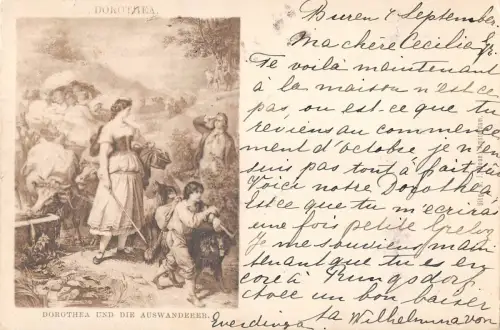 DOROTHEA.
DOROTHEA UND DIE AUSWANDERER.
Buren 4 September.
Ma chère Cecilia
Te voilà maintenant
à la maison n'est-ce
pas, ou est-ce que tu
reviens au commence
ment d'octobre je n'en
suis pas tout à fait sûr
Voici notre Dorothea
est ce que tu m'écriras
une fois petite
Je me souviens main
tenant que tu es en
core à
Avec un bon baiser
ta Wilhelmina von
Everdinga